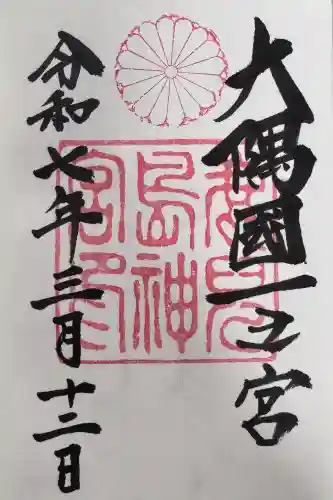 大隅國一之宮
鹿兒島神宮印
令和七年三月十二日